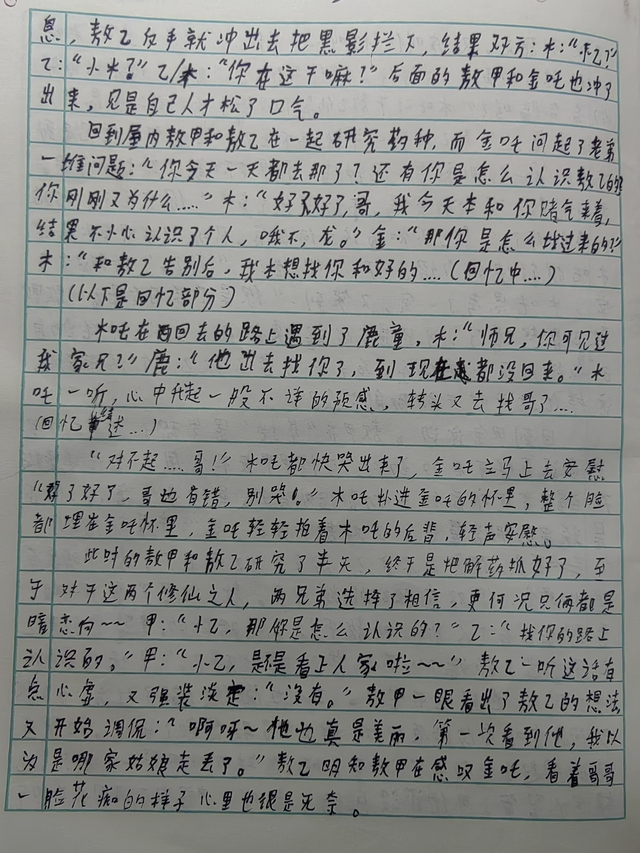 息，敖乙反手就冲出去把黑影拦下，结果对方：木：“敖乙？”
乙：“小木？”乙/木：“你在这干嘛？”后面的敖甲和金吒也冲了
出来，见是自己人才松了口气。
回到屋内敖甲和敖乙在一起研究药种，而金吒问起了老弟
一堆问题：“你今天一天都去那了？还有你是怎么认识敖乙的
你刚刚又为什么……”木：“好了好了，哥，我今天本和你赌气来着，
结果不小心认识了个人，哦不，龙。”金：“那你是怎么找过来的？”
木：“和敖乙告别后，我本想找你和好的……（回忆中……）
（以下是回忆部分）
木吒在回去的路上遇到了鹿童，木：“师兄，你可见过
我家兄？”鹿：“他出去找你了，到现在都没回来。”木
吒一听，心中升起一股不详的预感，转头又去找哥了……
（回忆结述…）
“对不起……哥！”木吒都快哭出来了，金吒立马上去安慰
“好了好了，哥也有错，别哭。”木吒扑进金吒的怀里，整个脸
都埋在金吒怀里，金吒轻轻拍着木吒的后背，轻声安慰。
此时的敖甲和敖乙研究了半天，终于是把解药抓好了，至
于对于这两个修仙之人，两兄弟选择了相信，更何况只俩都是
暗恋向~~ 甲：“小乙，那你是怎么认识的？”乙：“找你的路上
认识的。”甲：“小乙，是不是看上人家啦~~”敖乙一听这话有
点心虚，又强装淡定：“没有。”敖甲一眼看出了敖乙的想法
又开始调侃：“啊呀~他也真是美丽，第一次看到他，我以
为是哪家姑娘走丢了。”敖乙明知敖甲在感叹金吒，看着哥哥
一脸花痴的样子心里也很是无奈。